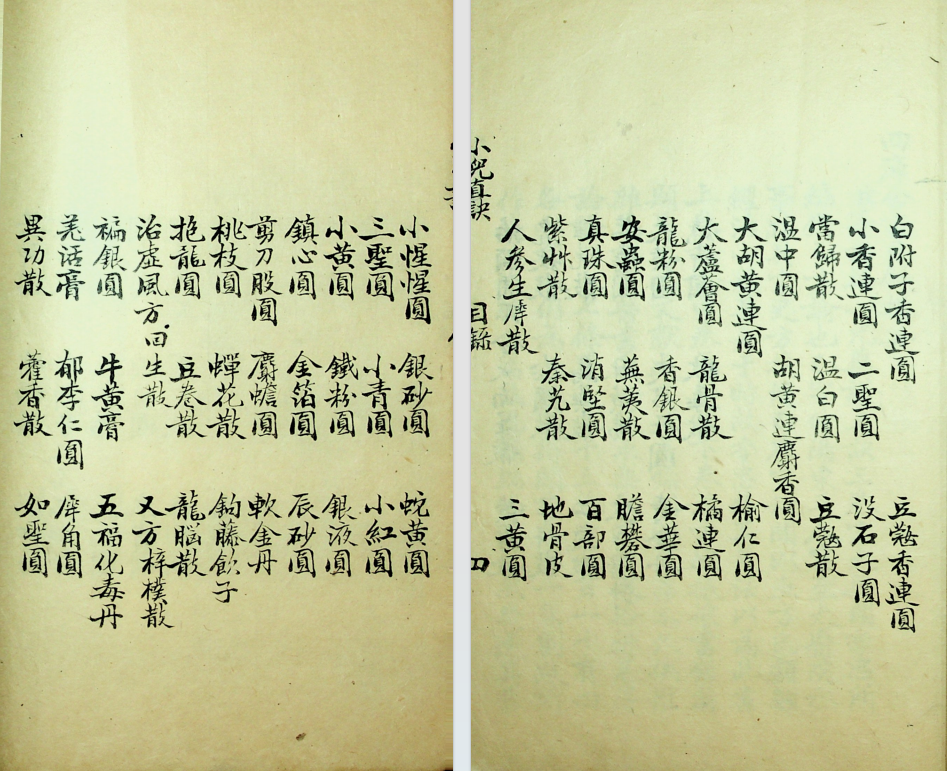 白附子香連圓 豆蔲香連圓
小香連圓 二聖圓 没石子圓
當歸散 溫白圓 豆蔲散
溫中圓 胡黄連麝香圓
大胡黄連圓 榆仁圓
大蘆薈圓 龍骨散 橘連圓
龍粉圓 香銀圓 金華圓
安蟲圓 蕪荑散 膽礬圓
真珠圓 消堅圓 百部圓
紫艸散 秦艽散 地骨皮
人參生犀散 三黄圓
小兒直訣 目錄 四
小惺惺圓 銀砂圓 蛇黄圓
三聖圓 小青圓 小紅圓
小黄圓 鐵粉圓 銀液圓
鎮心圓 金箔圓 辰砂圓
剪刀股圓 麝蟾圓 軟金丹
桃枝圓 蟬花散 鈎藤飲子
抱龍圓 豆卷散 龍脳散
治虛風方 回生散 又方梓樸散
褊銀圓 牛黄膏 五福化毒丹
羌活膏 郁李仁圓 犀角圓
異功散 藿香散 如聖圓